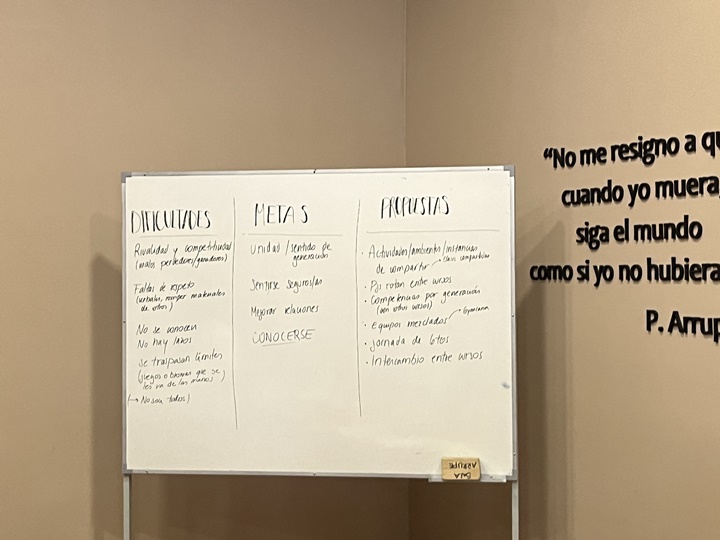 DIFICULTADES
Rivalidad y competitividad
(malos perdedores/ganadores)
Faltas de respeto
(verbales, romper materiales
de otros)
No se conocen
No hay lazos
Se traspasan límites
(juegos o bromas que se
les va de las manos)
(→ No son todos)
METAS
Unidad / sentido de
generación
Sentirse seguros/as
Mejorar relaciones
CONOCERSE
PROPUESTAS
· Actividades/ambientes/instancias
de compartir → clases compartidas
· PJs rotan entre cursos
· Competencias por generación
(con otros cursos)
· Equipos mezclados → gymcana
· Jornada de 6tos
· Intercambio entre cursos
SALA
ARRUPE
“No me resigno a qu
cuando yo muera,
siga el mundo
como si yo no hubiera
P. Arrup